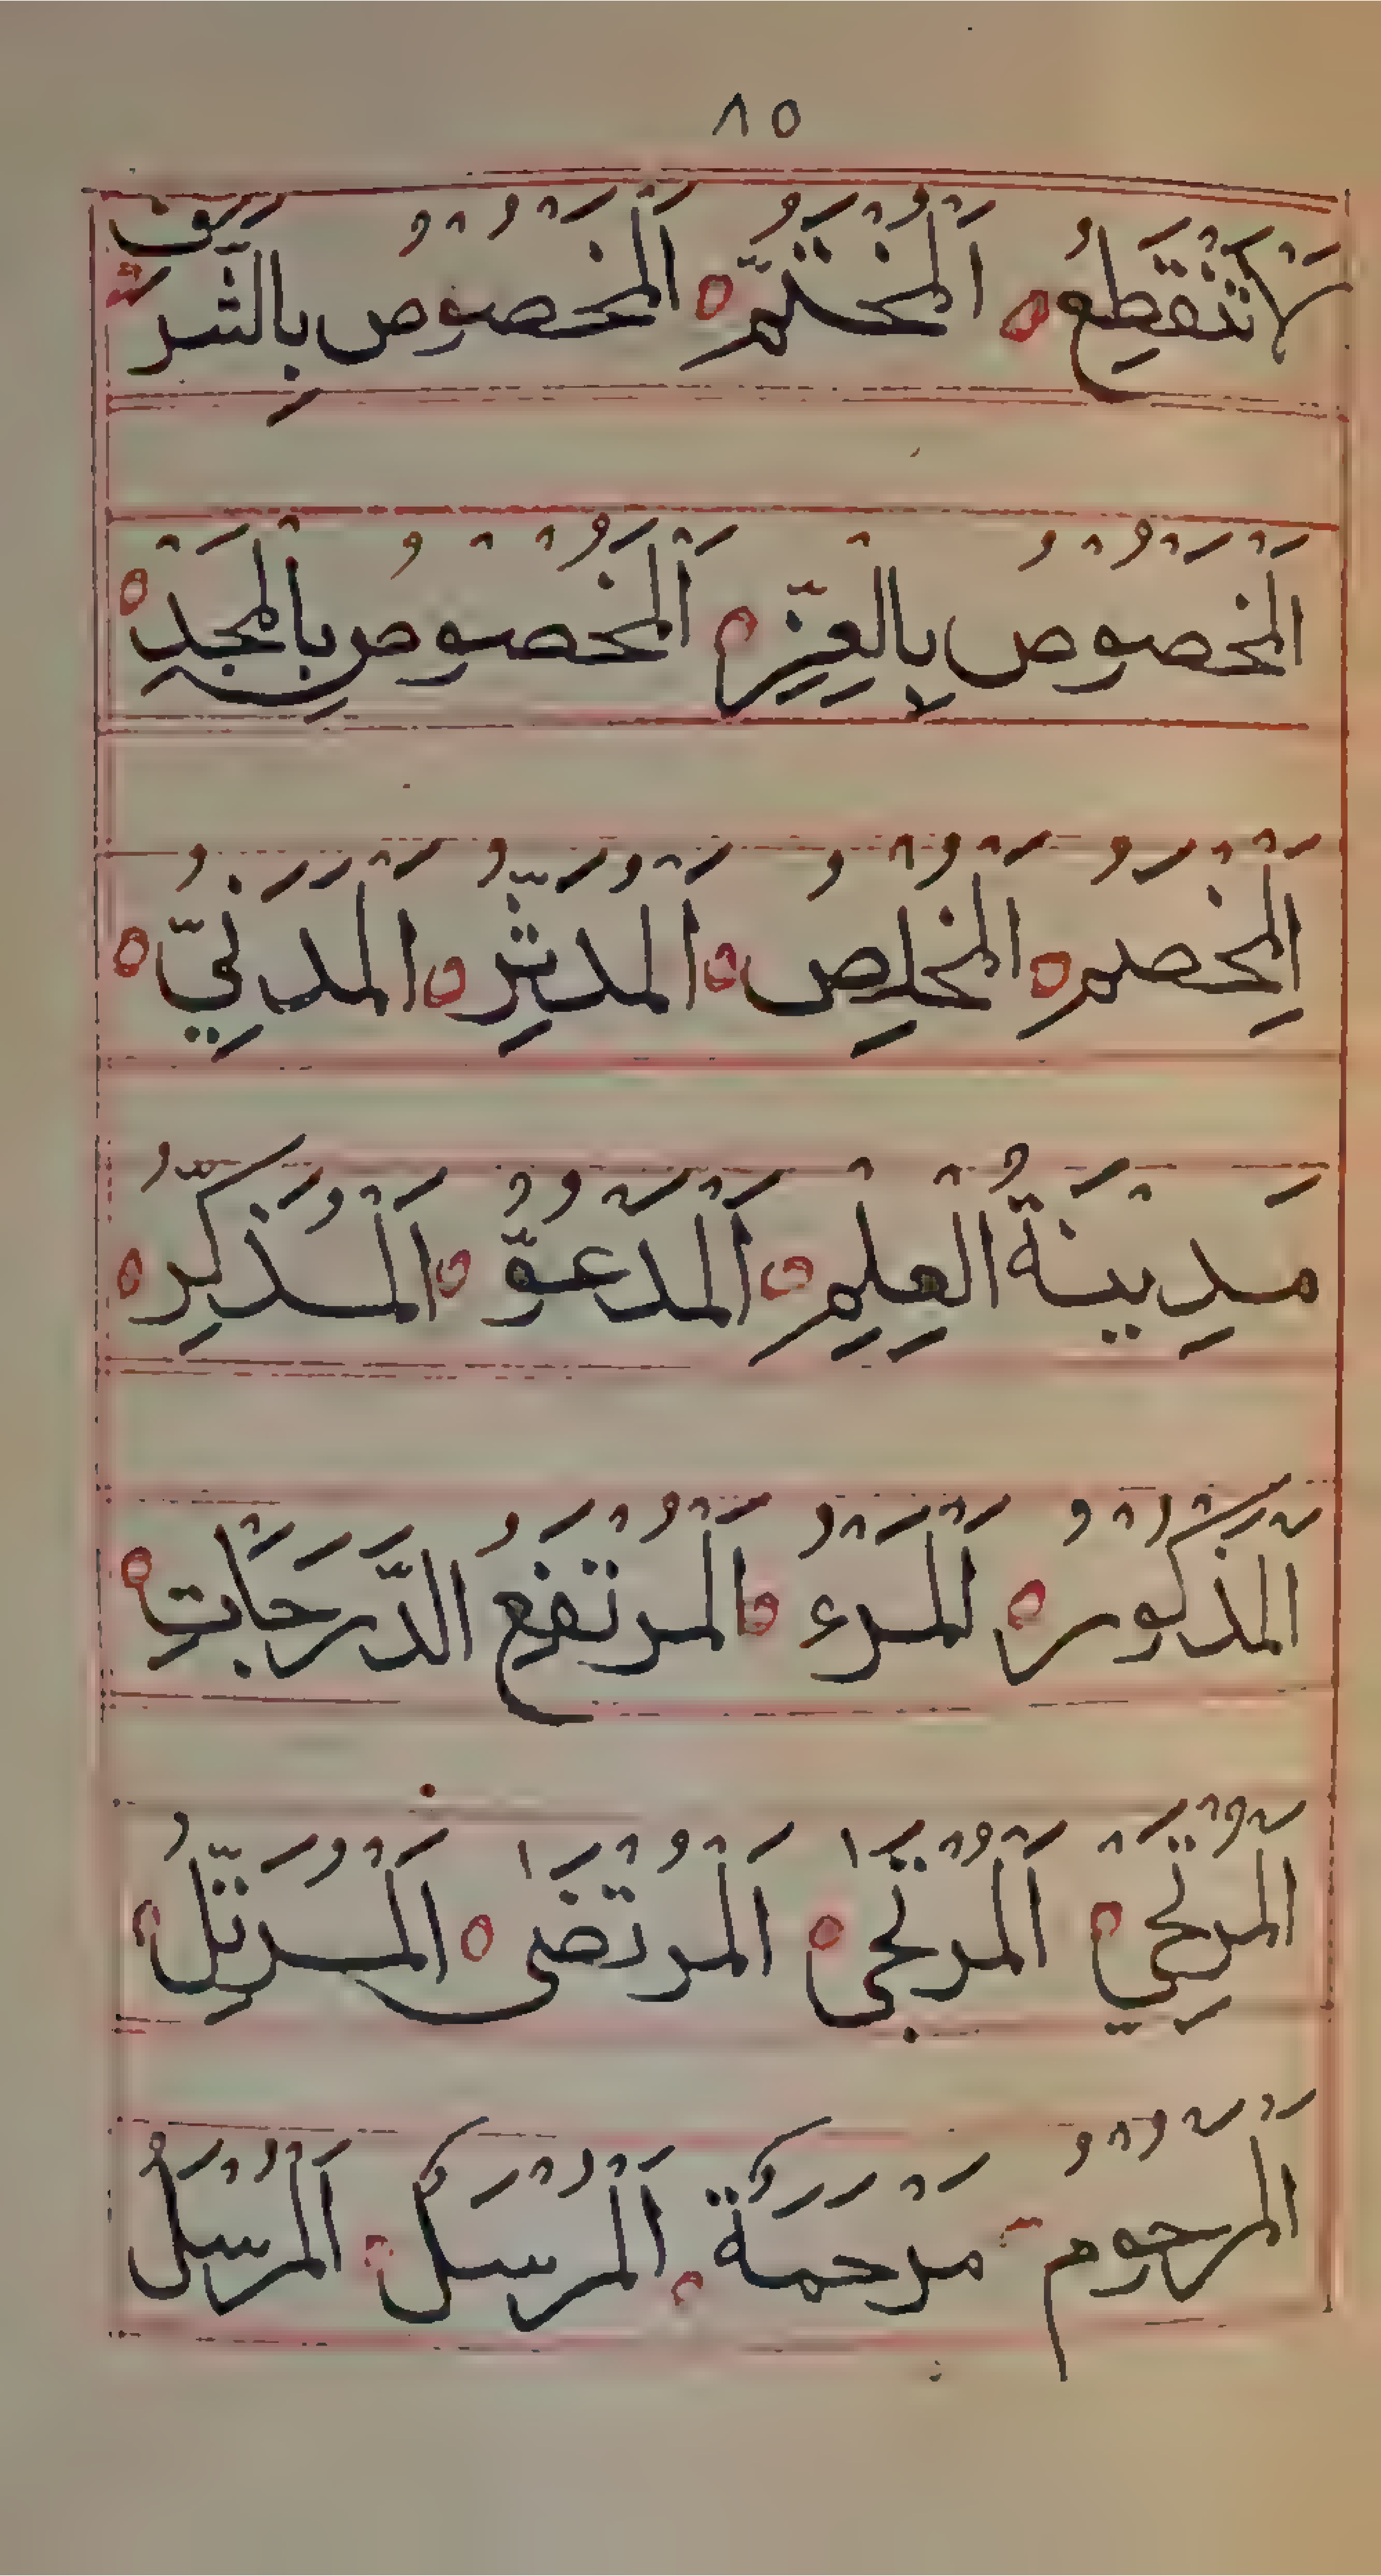 ٨٥
لَا تَنْقَطِعُ اَلْمُخَتَّمُ اَلْمَخْصُوْصُ بِالشَّرَفِ
اَلْمَخْصُوْصُ بِالْعِزِّ اَلْمَخْصُوْصُ بِالْمَجْدِ
اَلْمِخْضَمُ اَلْمُخْلِصُ اَلْمُدَثِّرُ اَلْمَدَنِيُّ
مَدِيْنَةُ الْعِلْمِ اَلْمَدْعُوُّ اَلْمُذَكِّرُ
اَلْمَذْكُوْرُ اَلْمَرْءُ اَلْمُرْتَفِعُ الدَّرَجَاتِ
اَلْمُرْتَجِيْ اَلْمُرْتَجٰى اَلْمُرْتَضٰى اَلْمُرَتِّلُ
اَلْمَرْحُوْمُ مَرْحَمَةُ اَلْمُرْسَلُ اَلْمُرْسَلُ